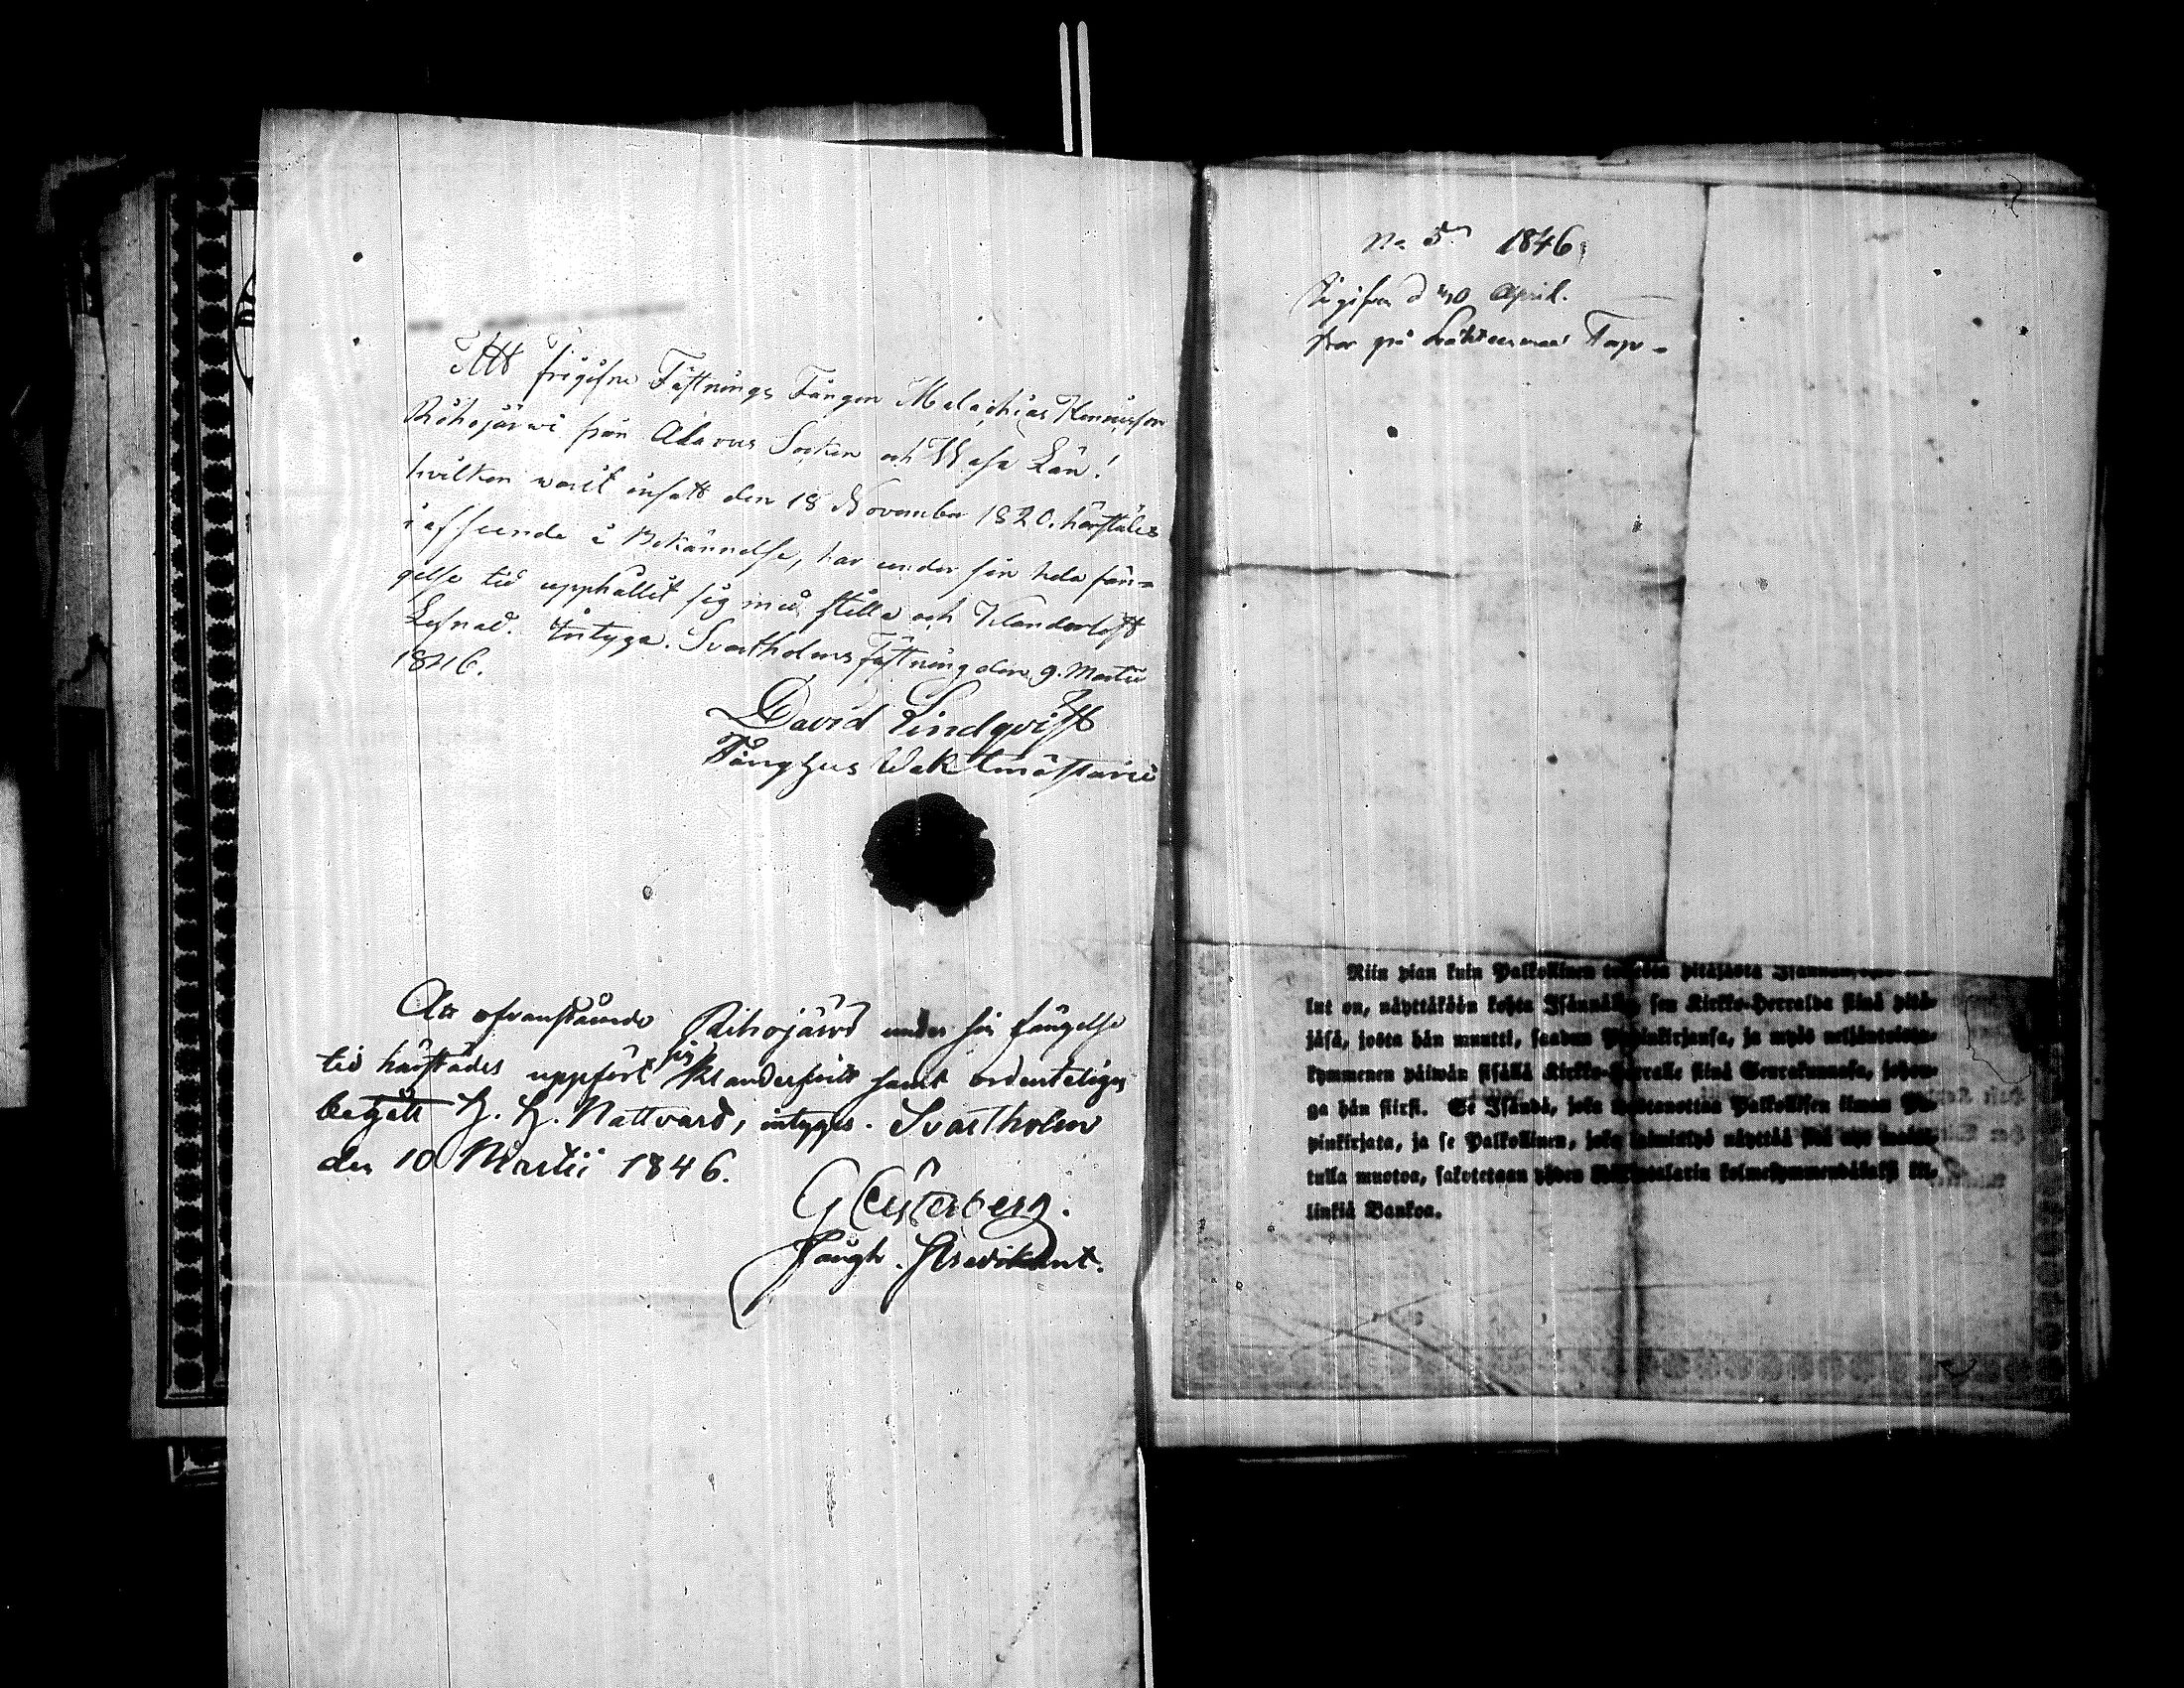 Att frigifne Fästnings Fången Malachias Henricsson
Rihojärwi från Alavus Socken och Wasa Län!
hvilken warit insatt den 18 November 1820. härstädes
i afseende å Bekännelse, har under sin hela fän=
gelse tid upphållit sig med stilla och Klanderlöst
Lefnad. Intyga. Svartholms Fästning den 9. Martii
1846.
David Lindqvist
Fånghus Waktmästare
Att ofvanstående Rihojärvi under sin fängelse
tid härstädes uppfört sig klanderfritt samt ordenteligen
begått H. H. Nattvard, intygas. Svartholm
den 10 Martii 1846.
G Cesterberg.
Fångh. Predikant.
No 5. 1846.
d 30 April.
på
Niin pian kuin Palkollinen pitäjästä
lut on, näyttäköön kohta Isännälle, sen Kirkko-Herralda siinä pitä-
jäsä, josta hän muutti, saadun Papinkirjansa, ja myös neljäntoista-
kymmenen päiwän sisällä Kirkko-Herralle siinä Seurakunnasa, johon-
ga hän siirsi. Se Isändä, joka wastanottaa Palkollisen ilman Pa-
pinkirjata, ja se Palkollinen, joka laimilyö näyttää sitä nyt
tulla muotoa, sakotetaan yhden kolmekymmendäkaksi kil-
linkiä Bankoa.